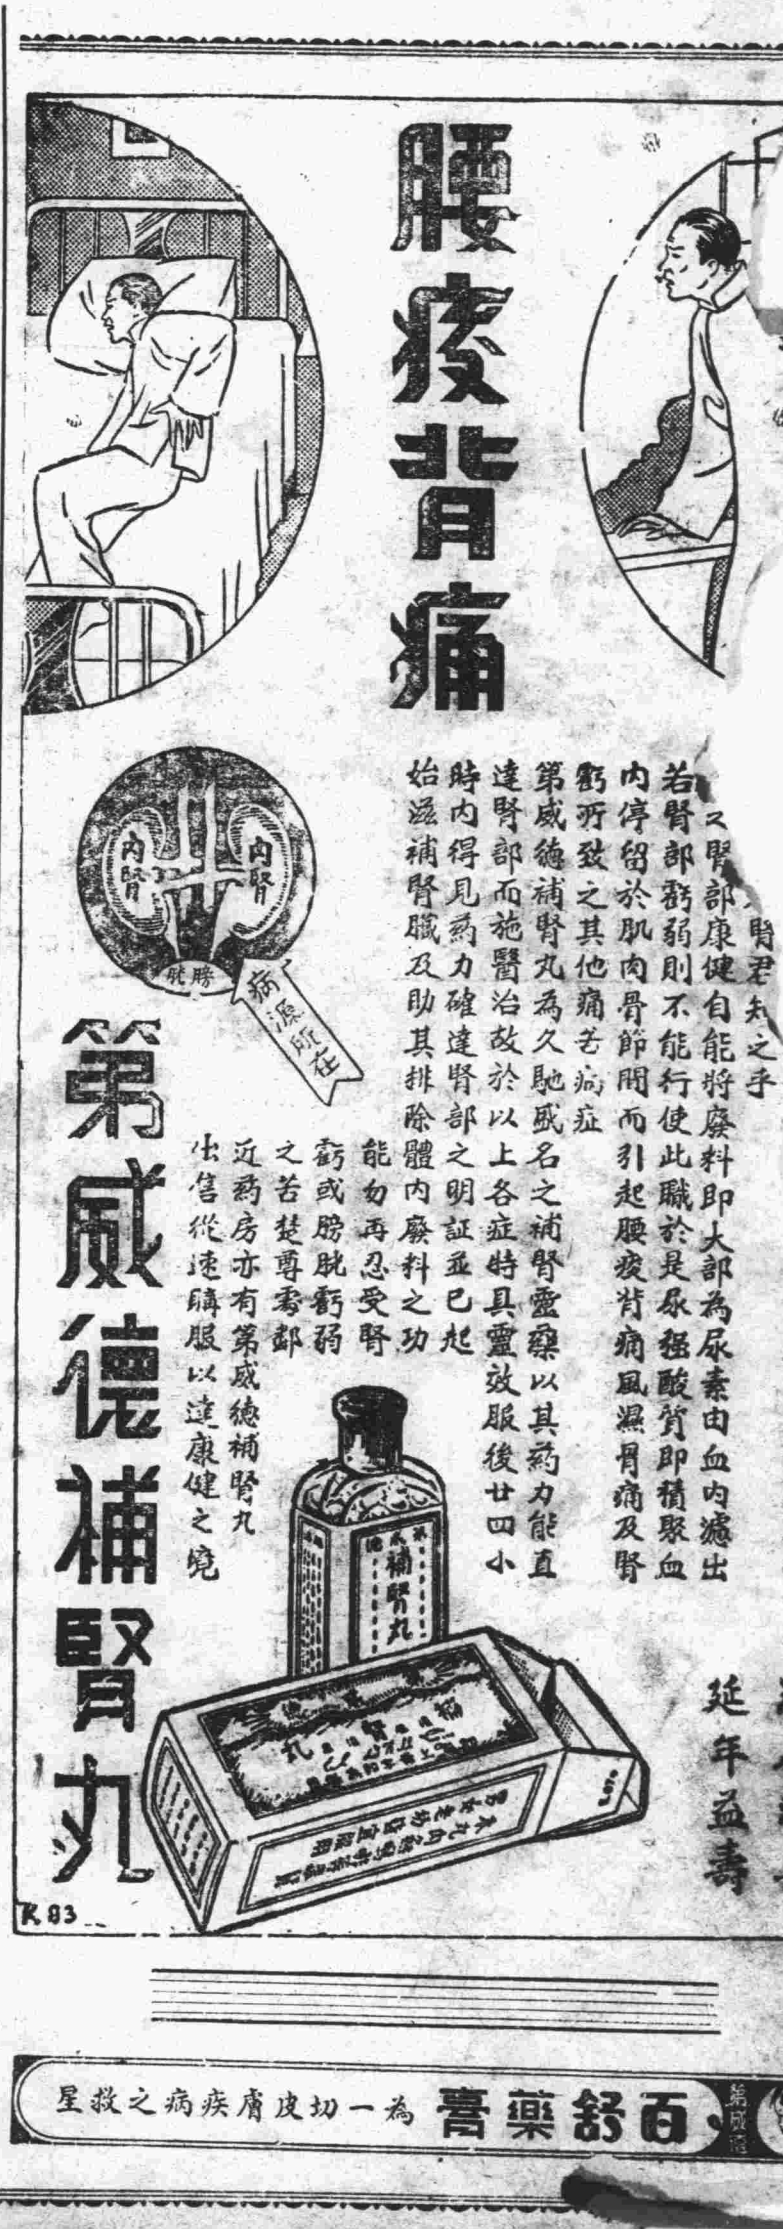 腰痠背痛
腎君知之乎
腎部康健自能將廢料即大部為尿素由血內濾出
若腎部虧弱則不能行使此職於是尿強酸質即積聚血
內停留於肌肉骨節間而引起腰痠背痛風濕骨痛及腎
虧所致之其他痛苦病症
第威德補腎丸為久馳盛名之補腎靈藥以其药力能直
達腎部而施醫治故於以上各症時具靈效服後廿四小
時內得見药力確達腎部之明証並已起
始滋補腎臟及助其排除體內廢料之功
能勿再忍受腎
虧或膀胱虧弱
之苦楚尊寓鄰
近药房亦有第威德補腎丸
出售從速購服以達康健之境
內腎
內腎
膀胱
病源所在
第威德補腎丸
補腎丸
延年益壽
K 83
百舒藥膏
為一切皮膚疾病之救星